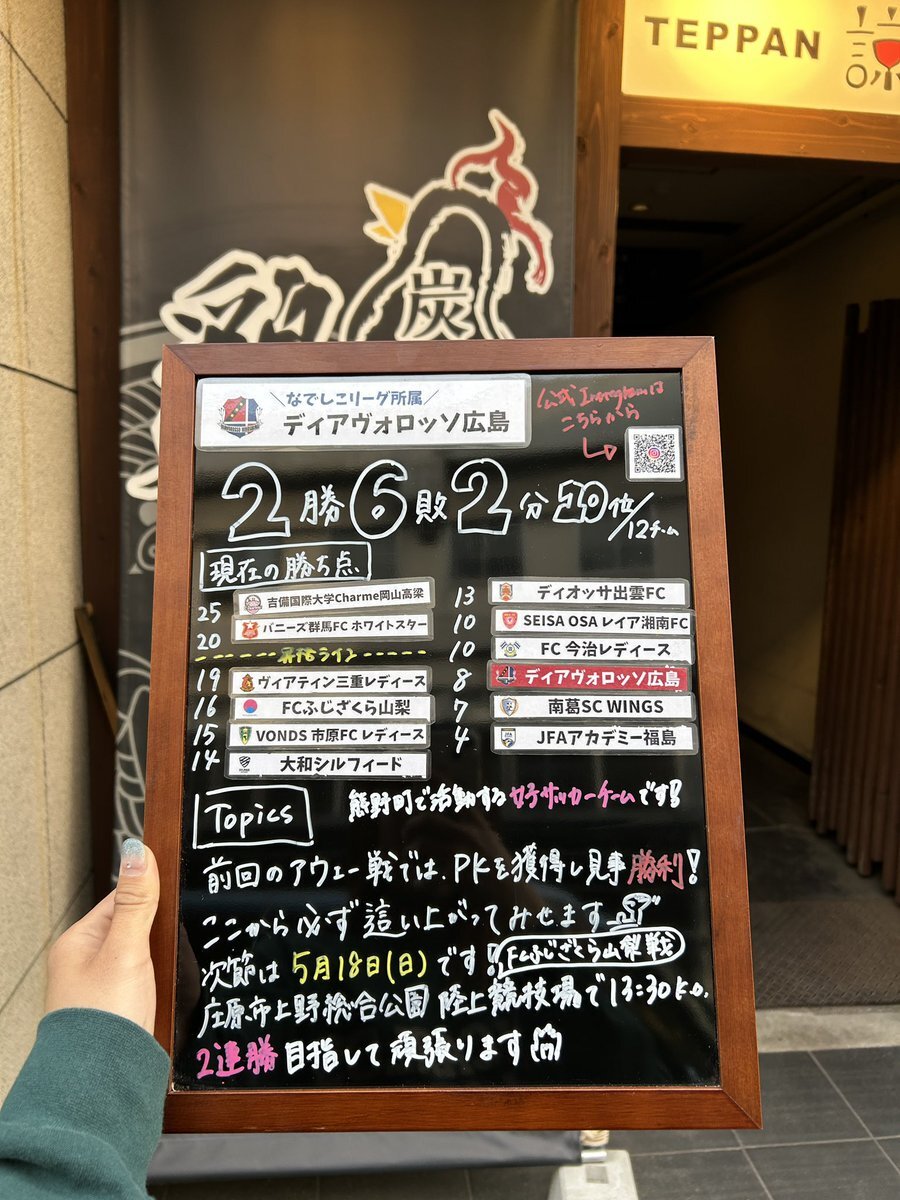 TEPPAN
炭
＼なでしこリーグ所属／
ディアヴォロッソ広島
公式Instagramは
こちらから
2勝6敗2分 10位/12チーム
現在の勝ち点
25 吉備国際大学Charme岡山高梁
20 バニーズ群馬FC ホワイトスター
昇格ライン
19 ヴィアティン三重レディース
16 FCふじざくら山梨
15 VONDS 市原FC レディース
14 大和シルフィード
13 ディオッサ出雲FC
10 SEISA OSA レイア湘南FC
10 FC今治レディース
8 ディアヴォロッソ広島
7 南葛SC WINGS
4 JFAアカデミー福島
Topics
熊野町で活動する女子サッカーチームです!
前回のアウェー戦では、PKを獲得し見事勝利!
ここから必ず這い上がってみせます
次節は5月18日(日)です! FCふじざくら山梨戦
庄原市上野総合公園 陸上競技場で13:30k.o.
2連勝目指して頑張ります